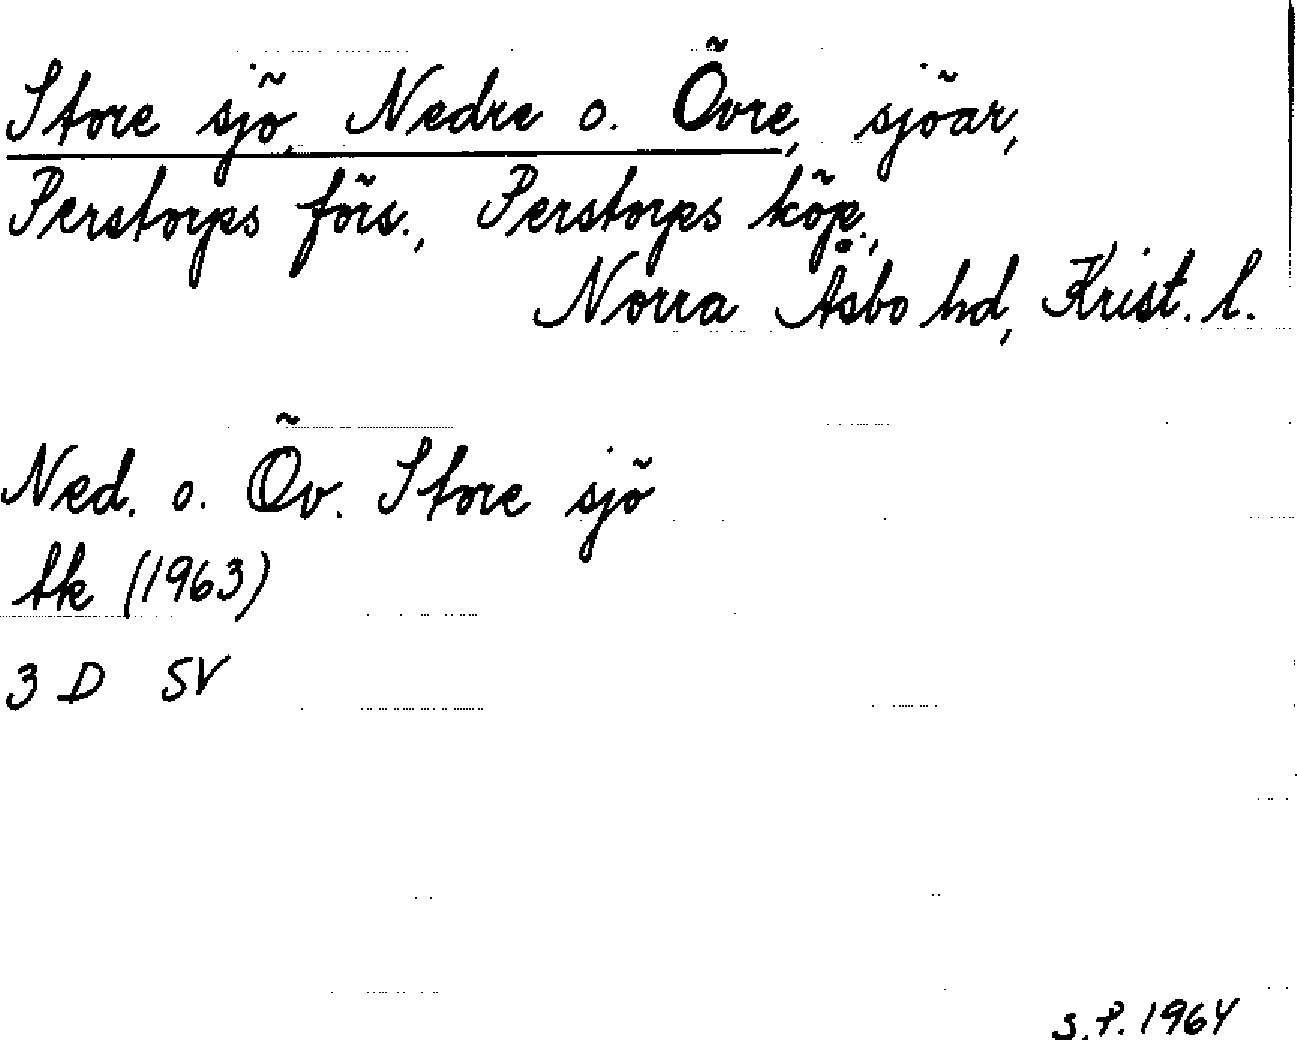 Store sjö, Nedre o. Övre, sjöar,
Perstorps förs., Perstorps köp.,
Norra Åsbo hd, Krist. l.
Ned. o. Öv. Store sjö
tk (1963)
3 D SV
S.P. 1964